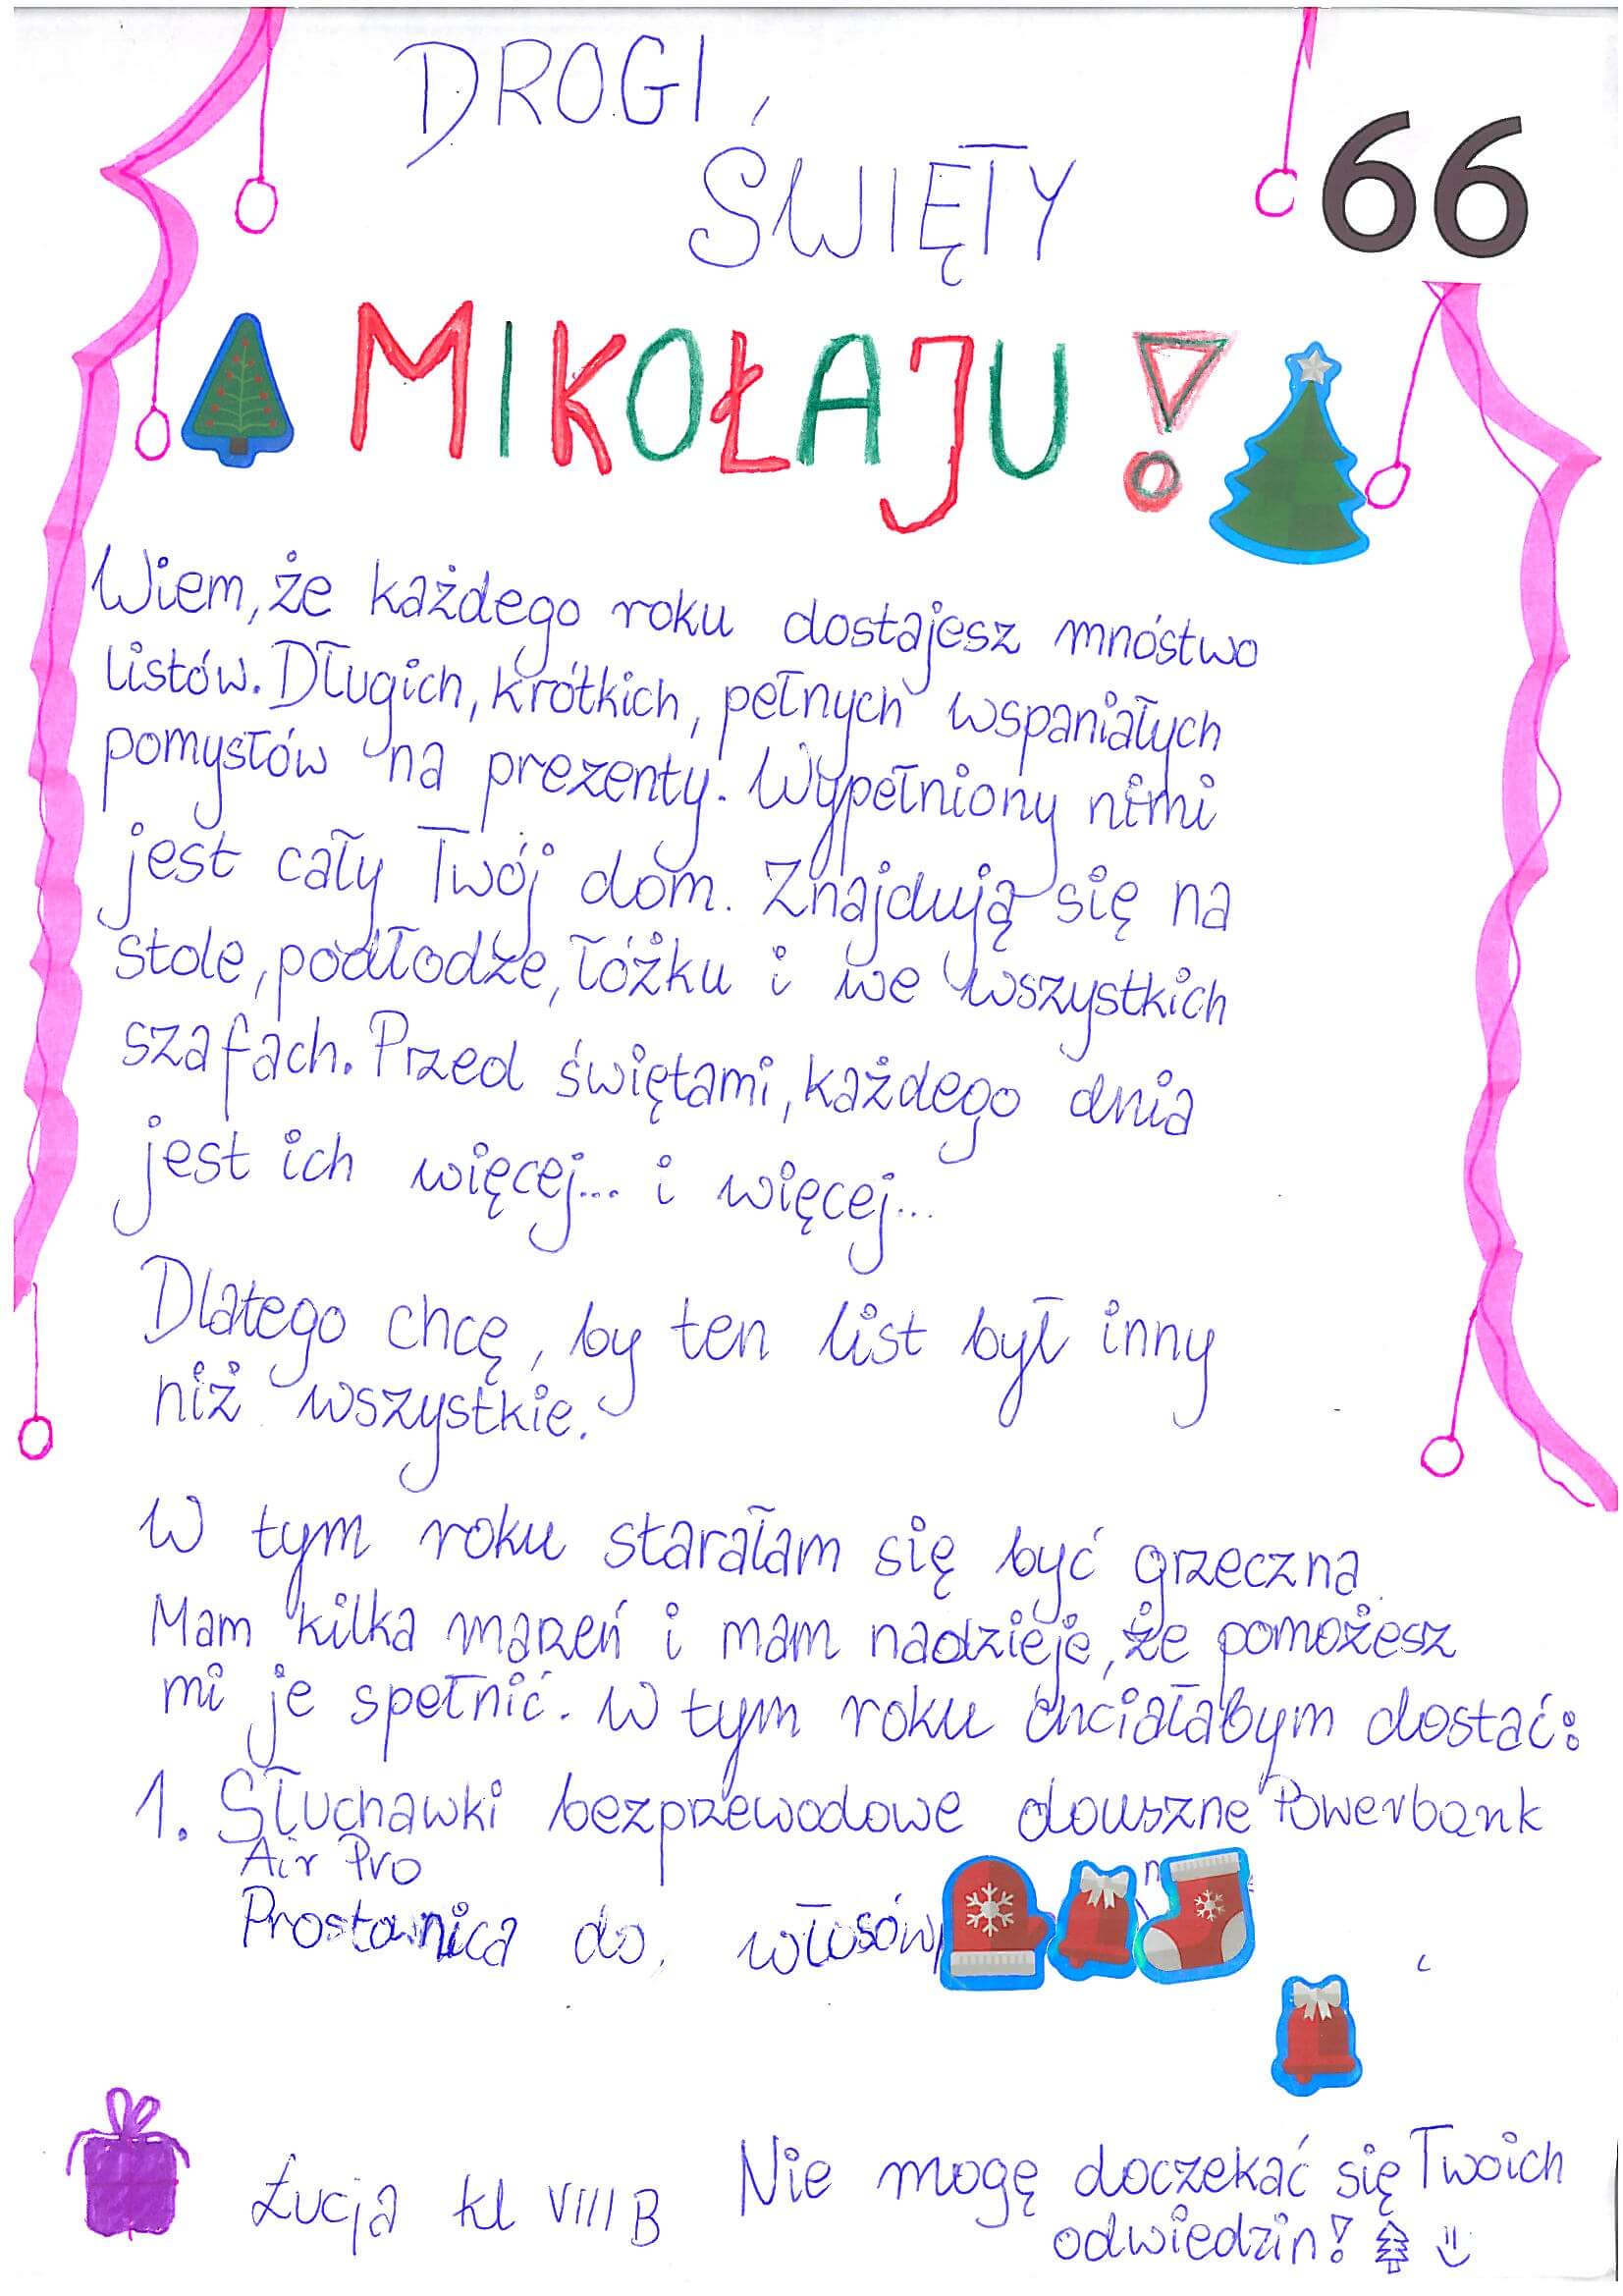 DROGI
66
ŚWIĘTY
MIKOŁAJU!
Wiem, że każdego roku dostajesz mnóstwo
listów. Długich, krótkich, pełnych wspaniałych
pomysłów na prezenty. Wypełniony nimi
jest cały Twój dom. Znajdują się na
stole, podłodze, łóżku i we wszystkich
szafach. Przed świętami, każdego dnia
jest ich więcej... i więcej...
Dlatego chcę, by ten list był inny
niż wszystkie.
W tym roku starałam się być grzeczna.
Mam kilka marzeń i mam nadzieje, że pomożesz
mi je spełnić. W tym roku chciałabym dostać:
1. Słuchawki bezprzewodowe douszne Powerbank
Air Pro
Prostownica do włosów
Łucja kl VIII B
Nie mogę doczekać się Twoich
odwiedzin!